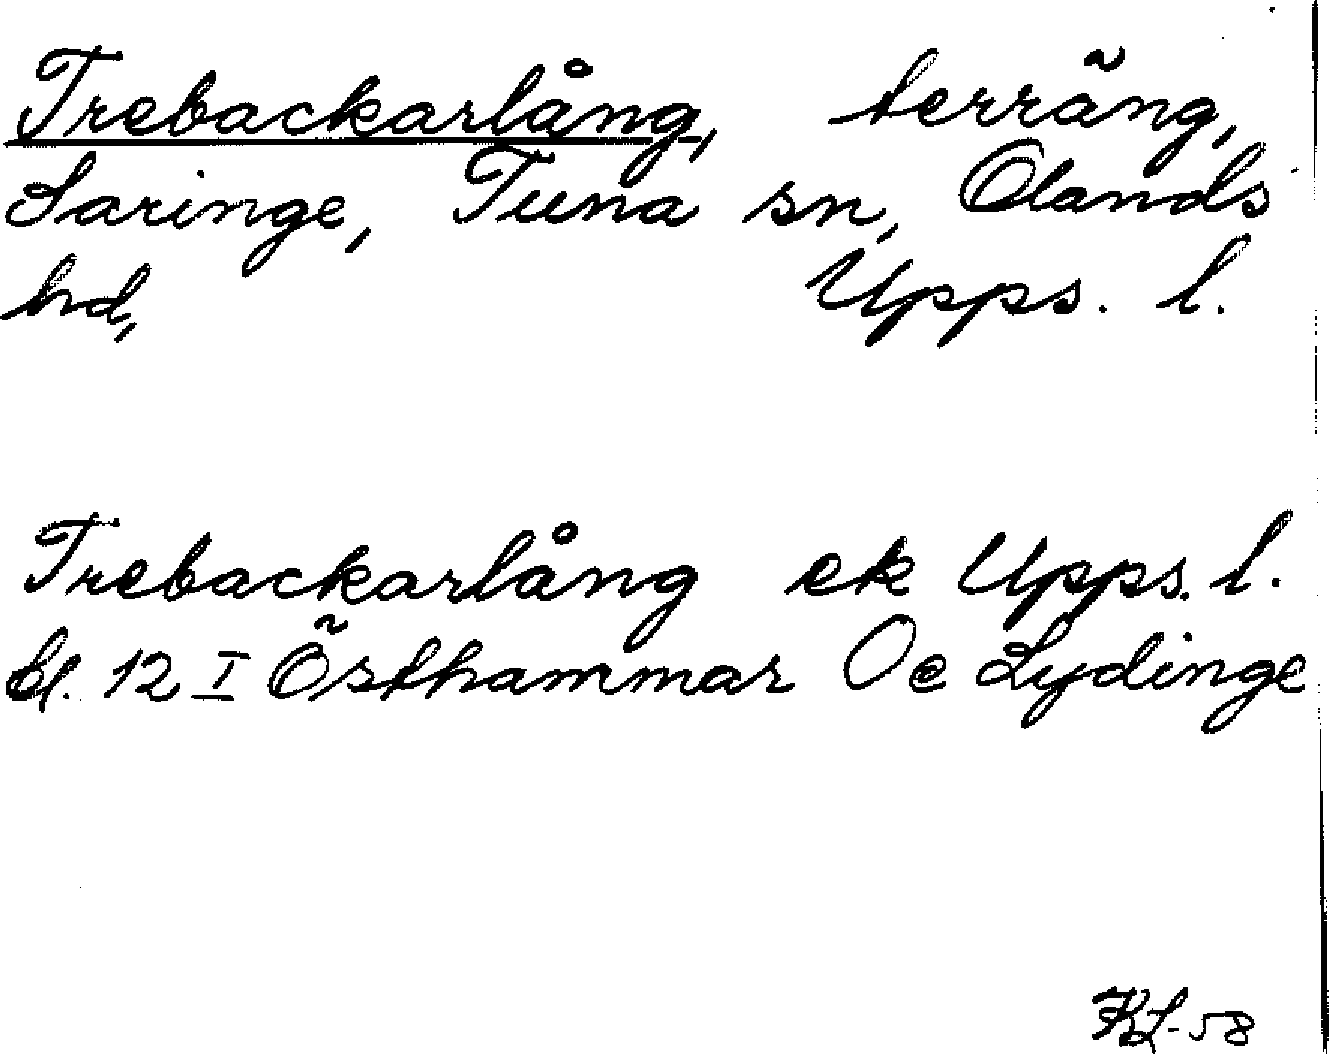 Trebackarlång, terräng,
Saringe, Tuna sn, Olands
hd, Upps. l.
Trebackarlång ek Upps. l.
bl. 12 I Östhammar Oc Lydinge
KL-58